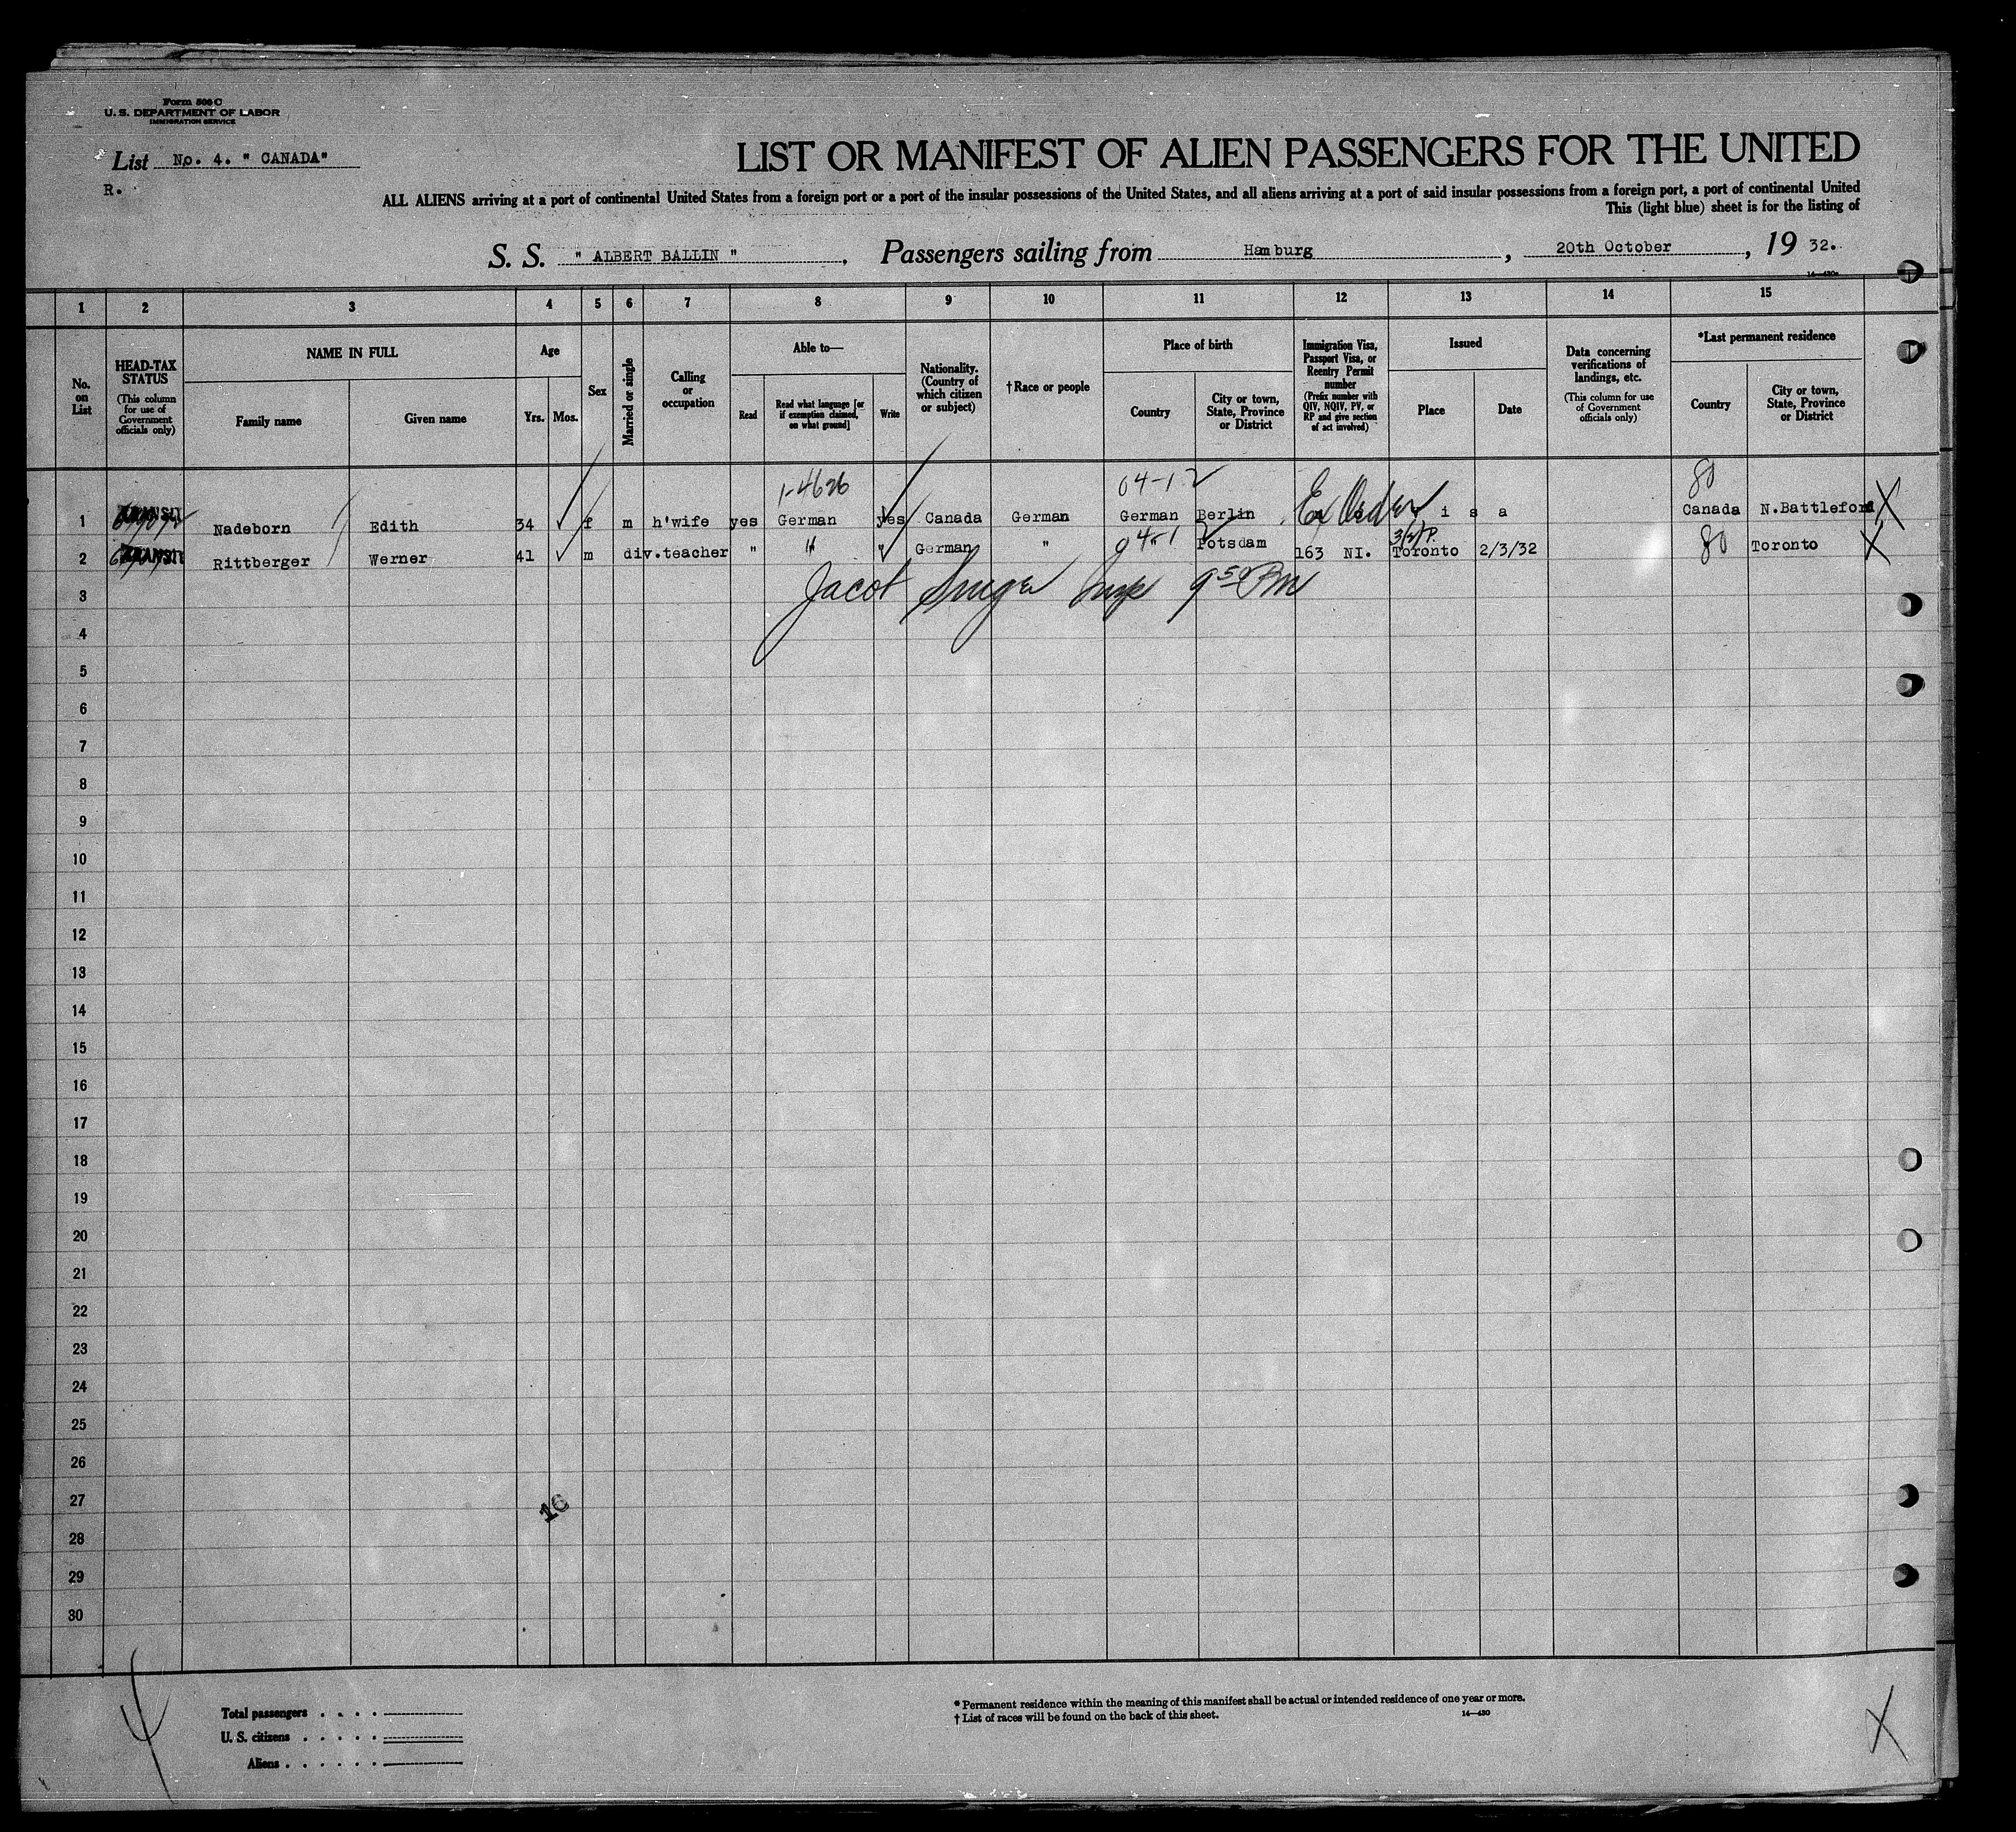 Form 500 C
U. S. DEPARTMENT OF LABOR
IMMIGRATION SERVICE
List No. 4. " CANADA"
R.
LIST OR MANIFEST OF ALIEN PASSENGERS FOR THE UNITED
ALL ALIENS arriving at a port of continental United States from a foreign port or a port of the insular possessions of the United States, and all aliens arriving at a port of said insular possessions from a foreign port, a port of continental United
This (light blue) sheet is for the listing of
S. S. " ALBERT BALLIN " , Passengers sailing from Hamburg , 20th October , 19 32.
14—430a
1 2 3 4 5 6 7 8 9 10 11 12 13 14 15
No. on List
HEAD-TAX STATUS (This column for use of Government officials only)
NAME IN FULL
Family name
Given name
Age
Yrs. Mos.
Sex
Married or single
Calling or occupation
Able to—
Read
Read what language [or if exemption claimed, on what ground]
Write
Nationality. (Country of which citizen or subject)
†Race or people
Place of birth
Country
City or town, State, Province or District
Immigration Visa, Passport Visa, or Reentry Permit number (Prefix number with QIV, NQIV, PV, or RP and give section of act involved)
Issued
Place
Date
Data concerning verifications of landings, etc. (This column for use of Government officials only)
*Last permanent residence
Country
City or town, State, Province or District
1-4626 04-1 80
1 TRANSIT Nadeborn Edith 34 f m h'wife yes German yes Canada German German Berlin Ex Order i s a Canada N.Battleford X
2 TRANSIT Rittberger Werner 41 m div. teacher " " " German " 94-1 Potsdam 163 NI. Toronto 2/3/32 80 Toronto X
3 Jacob Insp 9 50 PM
4
5
6
7
8
9
10
11
12
13
14
15
16
17
18
19
20
21
22
23
24
25
26
27
16
28
29
30
4
Total passengers
U. S. citizens
Aliens
* Permanent residence within the meaning of this manifest shall be actual or intended residence of one year or more.
† List of races will be found on the back of this sheet.
14—430
X